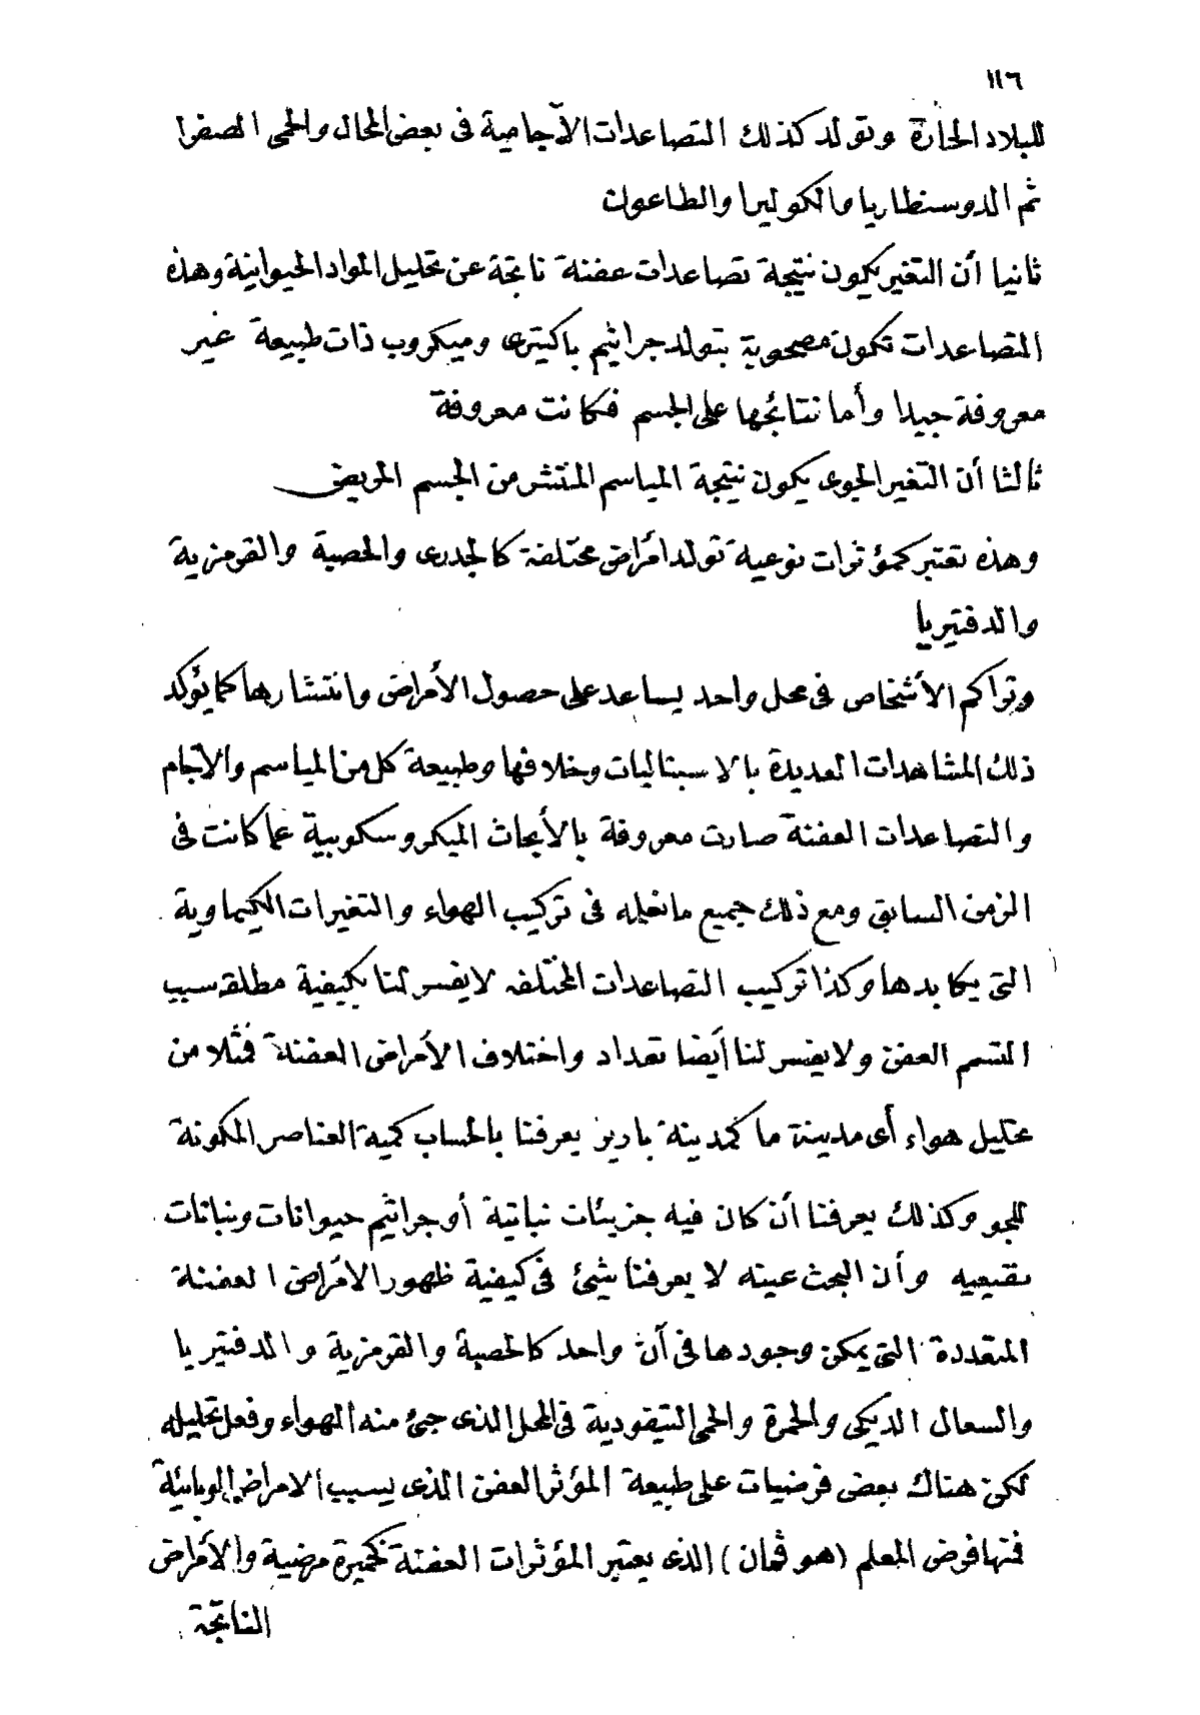 ١١٦
للبلاد الحارة وتولد كذلك التصاعدات الآجامية فى بعض المحال والحمى الصفرا
ثم الدوسنطاريا والكوليرا والطاعون
ثانيا أن التغير يكون نتيجة تصاعدات عفنة ناتجة عن تحليل المواد الحيوانية وهذه
التصاعدات تكون مصحوبة بتولد جراثيم باكتيرى وميكروب ذات طبيعة غير
معروفة جيدا وأما نتائجها على الجسم فكانت معروفة
ثالثا أن التغير الجوى يكون نتيجة المياسم المنتشر من الجسم المريض
وهذه تعتبر كمؤثرات نوعية تولد امراض مختلفة كالجدرى والحصبة والقرمزية
والدفتيريا
وتراكم الأشخاص فى محل واحد يساعد على حصول الأمراض وانتشارها كما يؤكد
ذلك المشاهدات العديدة بالاسبتاليات وخلافها وطبيعة كل من المياسم والآجام
والتصاعدات العفنة صارت معروفة بالأبحاث الميكروسكوبية عما كانت فى
الزمن السابق ومع ذلك جميع ما نعلمه فى تركيب الهواء والتغيرات الكيماوية
التى يكابدها وكذا تركيب التصاعدات المختلفه لا يفسر لنا بكيفية مطلقة سبب
التسمم العفن ولا يفسر لنا أيضا تعداد واختلاف الأمراض العفنة فمثلا من
تحليل هواء أى مدينة ما كمدينة باريز يعرفنا بالحساب كمية العناصر المكونة
للجو وكذلك يعرفنا أن كان فيه جزيئات نباتية أو جراثيم حيوانات ونباتات
نقيعيه وأن البحث عينه لا يعرفنا شيئ فى كيفية ظهور الامراض العفنة
المتعددة التى يمكن وجودها فى آن واحد كالحصبة والقرمزية والدفتيريا
والسعال الديكى والحمرة والحمى التيفودية فى المحل الذى جيئ منه الهواء وفعل تحليله
لكن هناك بعض فرضيات على طبيعة المؤثر العفن الذى يسبب الامراض الوبائية
فمنها فرض المعلم (هوفمان) الذى يعتبر المؤثرات العفنة كخميرة مرضية والأمراض
الناتجة